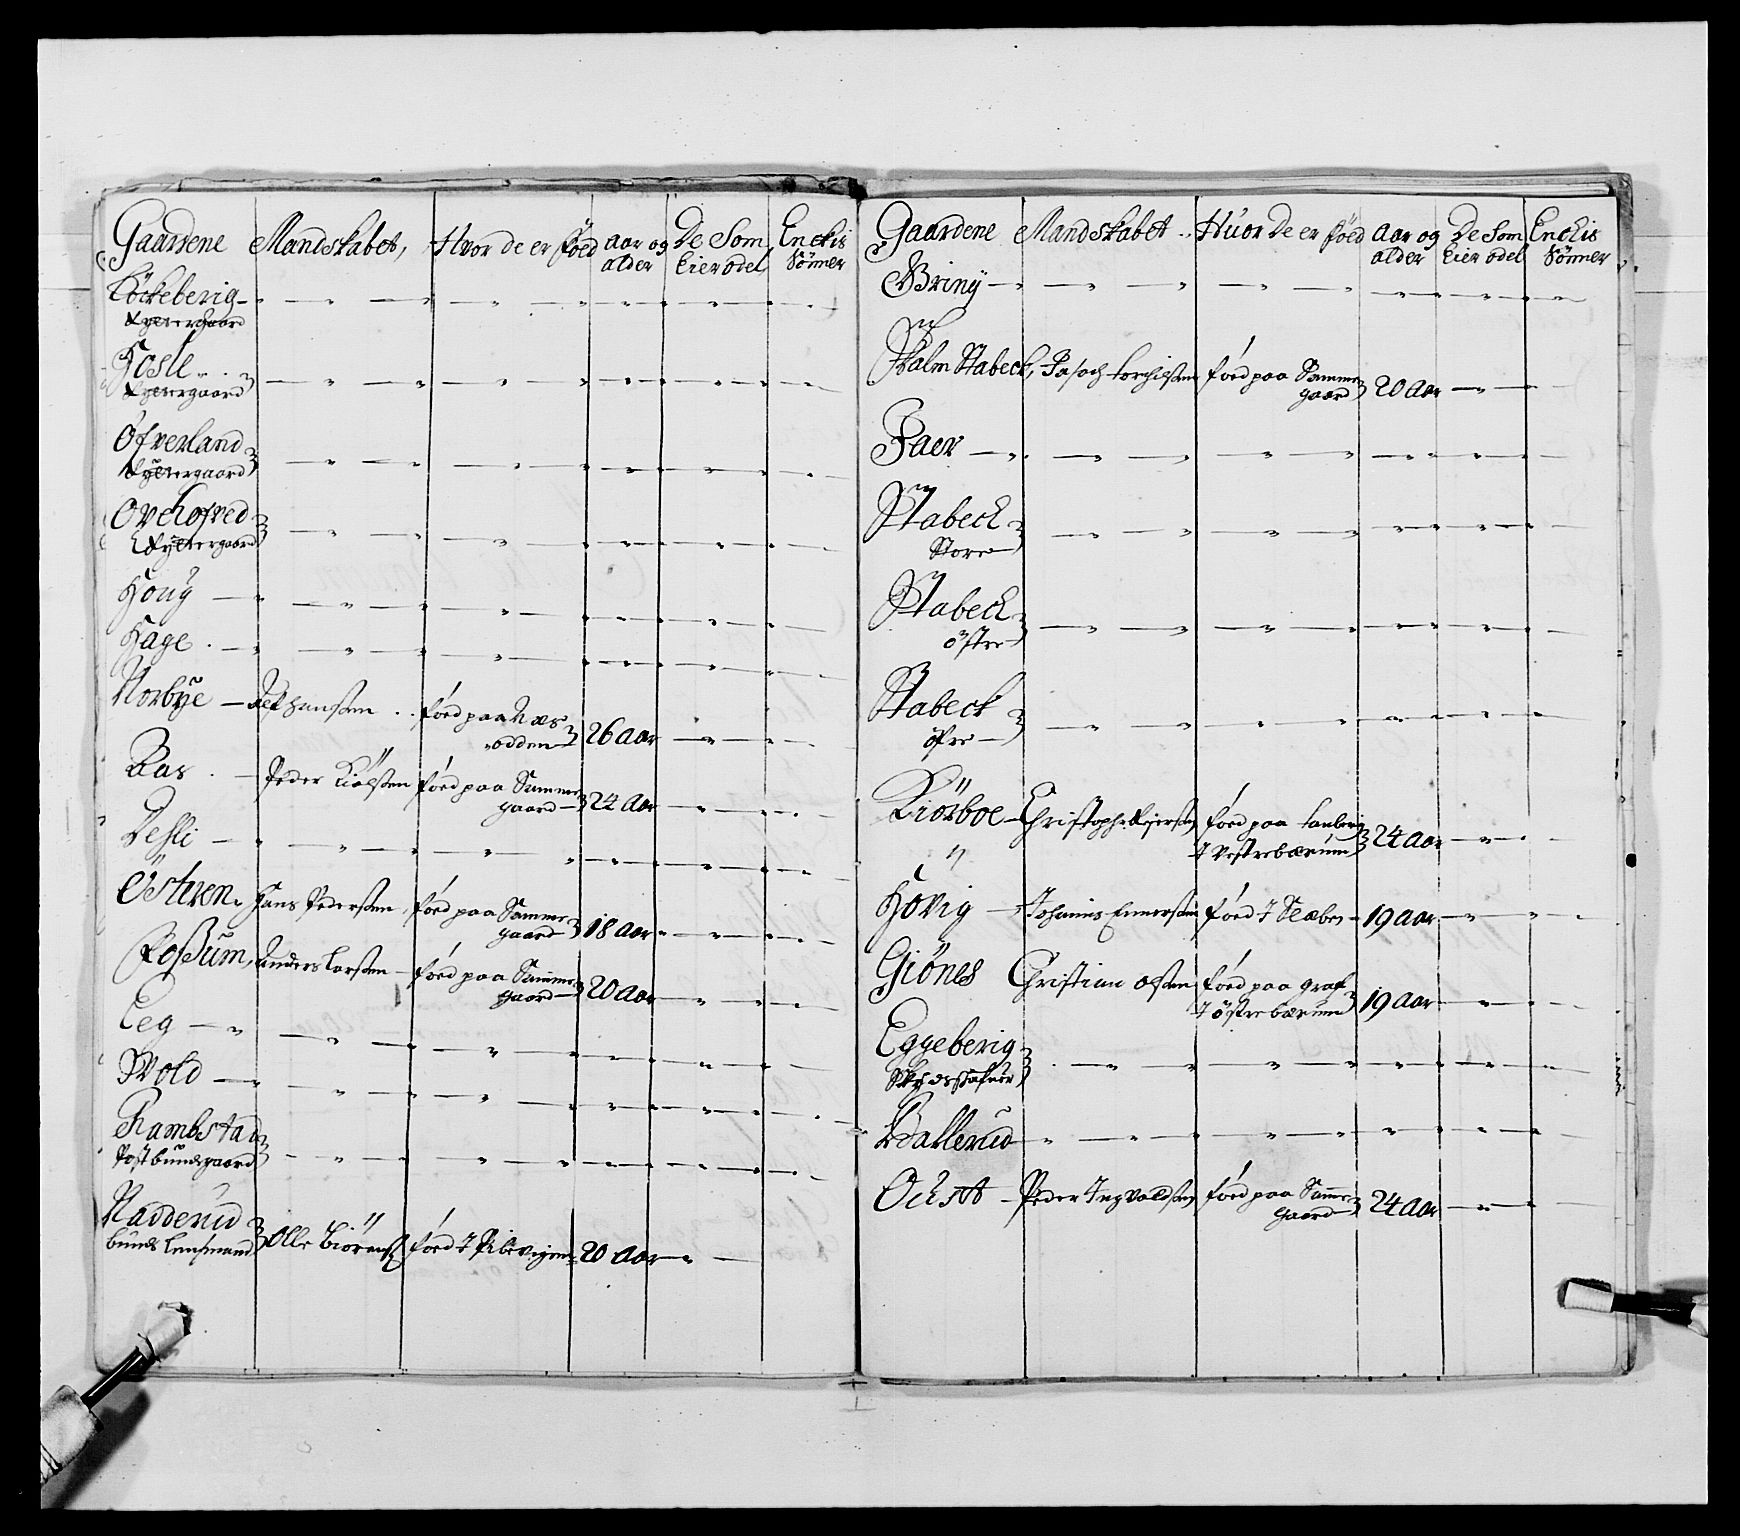 Gaardene Mandskabet, Hvor de er föed aar og alder De Som Eier odel Enckis Sönner
Löckeberig - " - " - " - " - " - "
Rytter gaard
Hosle - " - " - " - " - " - "
Rytter gaard
Öfverland - " - " - " - " - " - "
Rytter gaard
Ovehofved - " - " - " - " - " - "
Rytter gaard
Houg - " - " - " - " - " - "
Hage - " - " - " - " - " - "
Norbÿe - hansen föed paa Næs
odden 26 aar - " - "
Aas - Peder Kiölsen föed paa Samme
gaard 24 Aar - " - "
Desli - " - " - " - " - " - "
Österen Hans Pedersen föed paa Samme
gaard 18 aar - " - "
Foßum Anders Larsen föed paa Samme
gaard 20 aar - " - "
Eeg - " - " - " - " - " - "
Wold - " - " - " - " - " - "
Rambstad - " - " - " - " - " - "
Postbundegaard
Nadderud
bunde Lensmand Olle Biörens föed I 20 aar - "
Gaardene Mandskabet Huor De er föed aar og alder De Som Eier odel Enckis Sönner
Bring - " - " - " - " - " - "
Halm Stabeck, Torchilsen föed paa Samme
gaard 20 aar - "
Faer - " - " - " - " - " - "
Stabeck - " - " - " - " - " - "
Store
Stabeck - " - " - " - " - " - "
östre
Stabeck - " - " - " - " - " - "
öfre
Kiörboe - Christopher föed paa Tanberig
I Vestrebærum 24 aar - "
Hövig - Johannes Ennersen föed I 19 aar - " - "
Giönes Christian Olsen föed paa graf
I östre bærum 19 aar - "
Eggeberig - " - " - " - " - " - "
Skydsskafer
Ballerud - " - " - " - " - " - "
Ousst - Peder Ingvaldsen föed paa Samme
gaard 24 aar - "